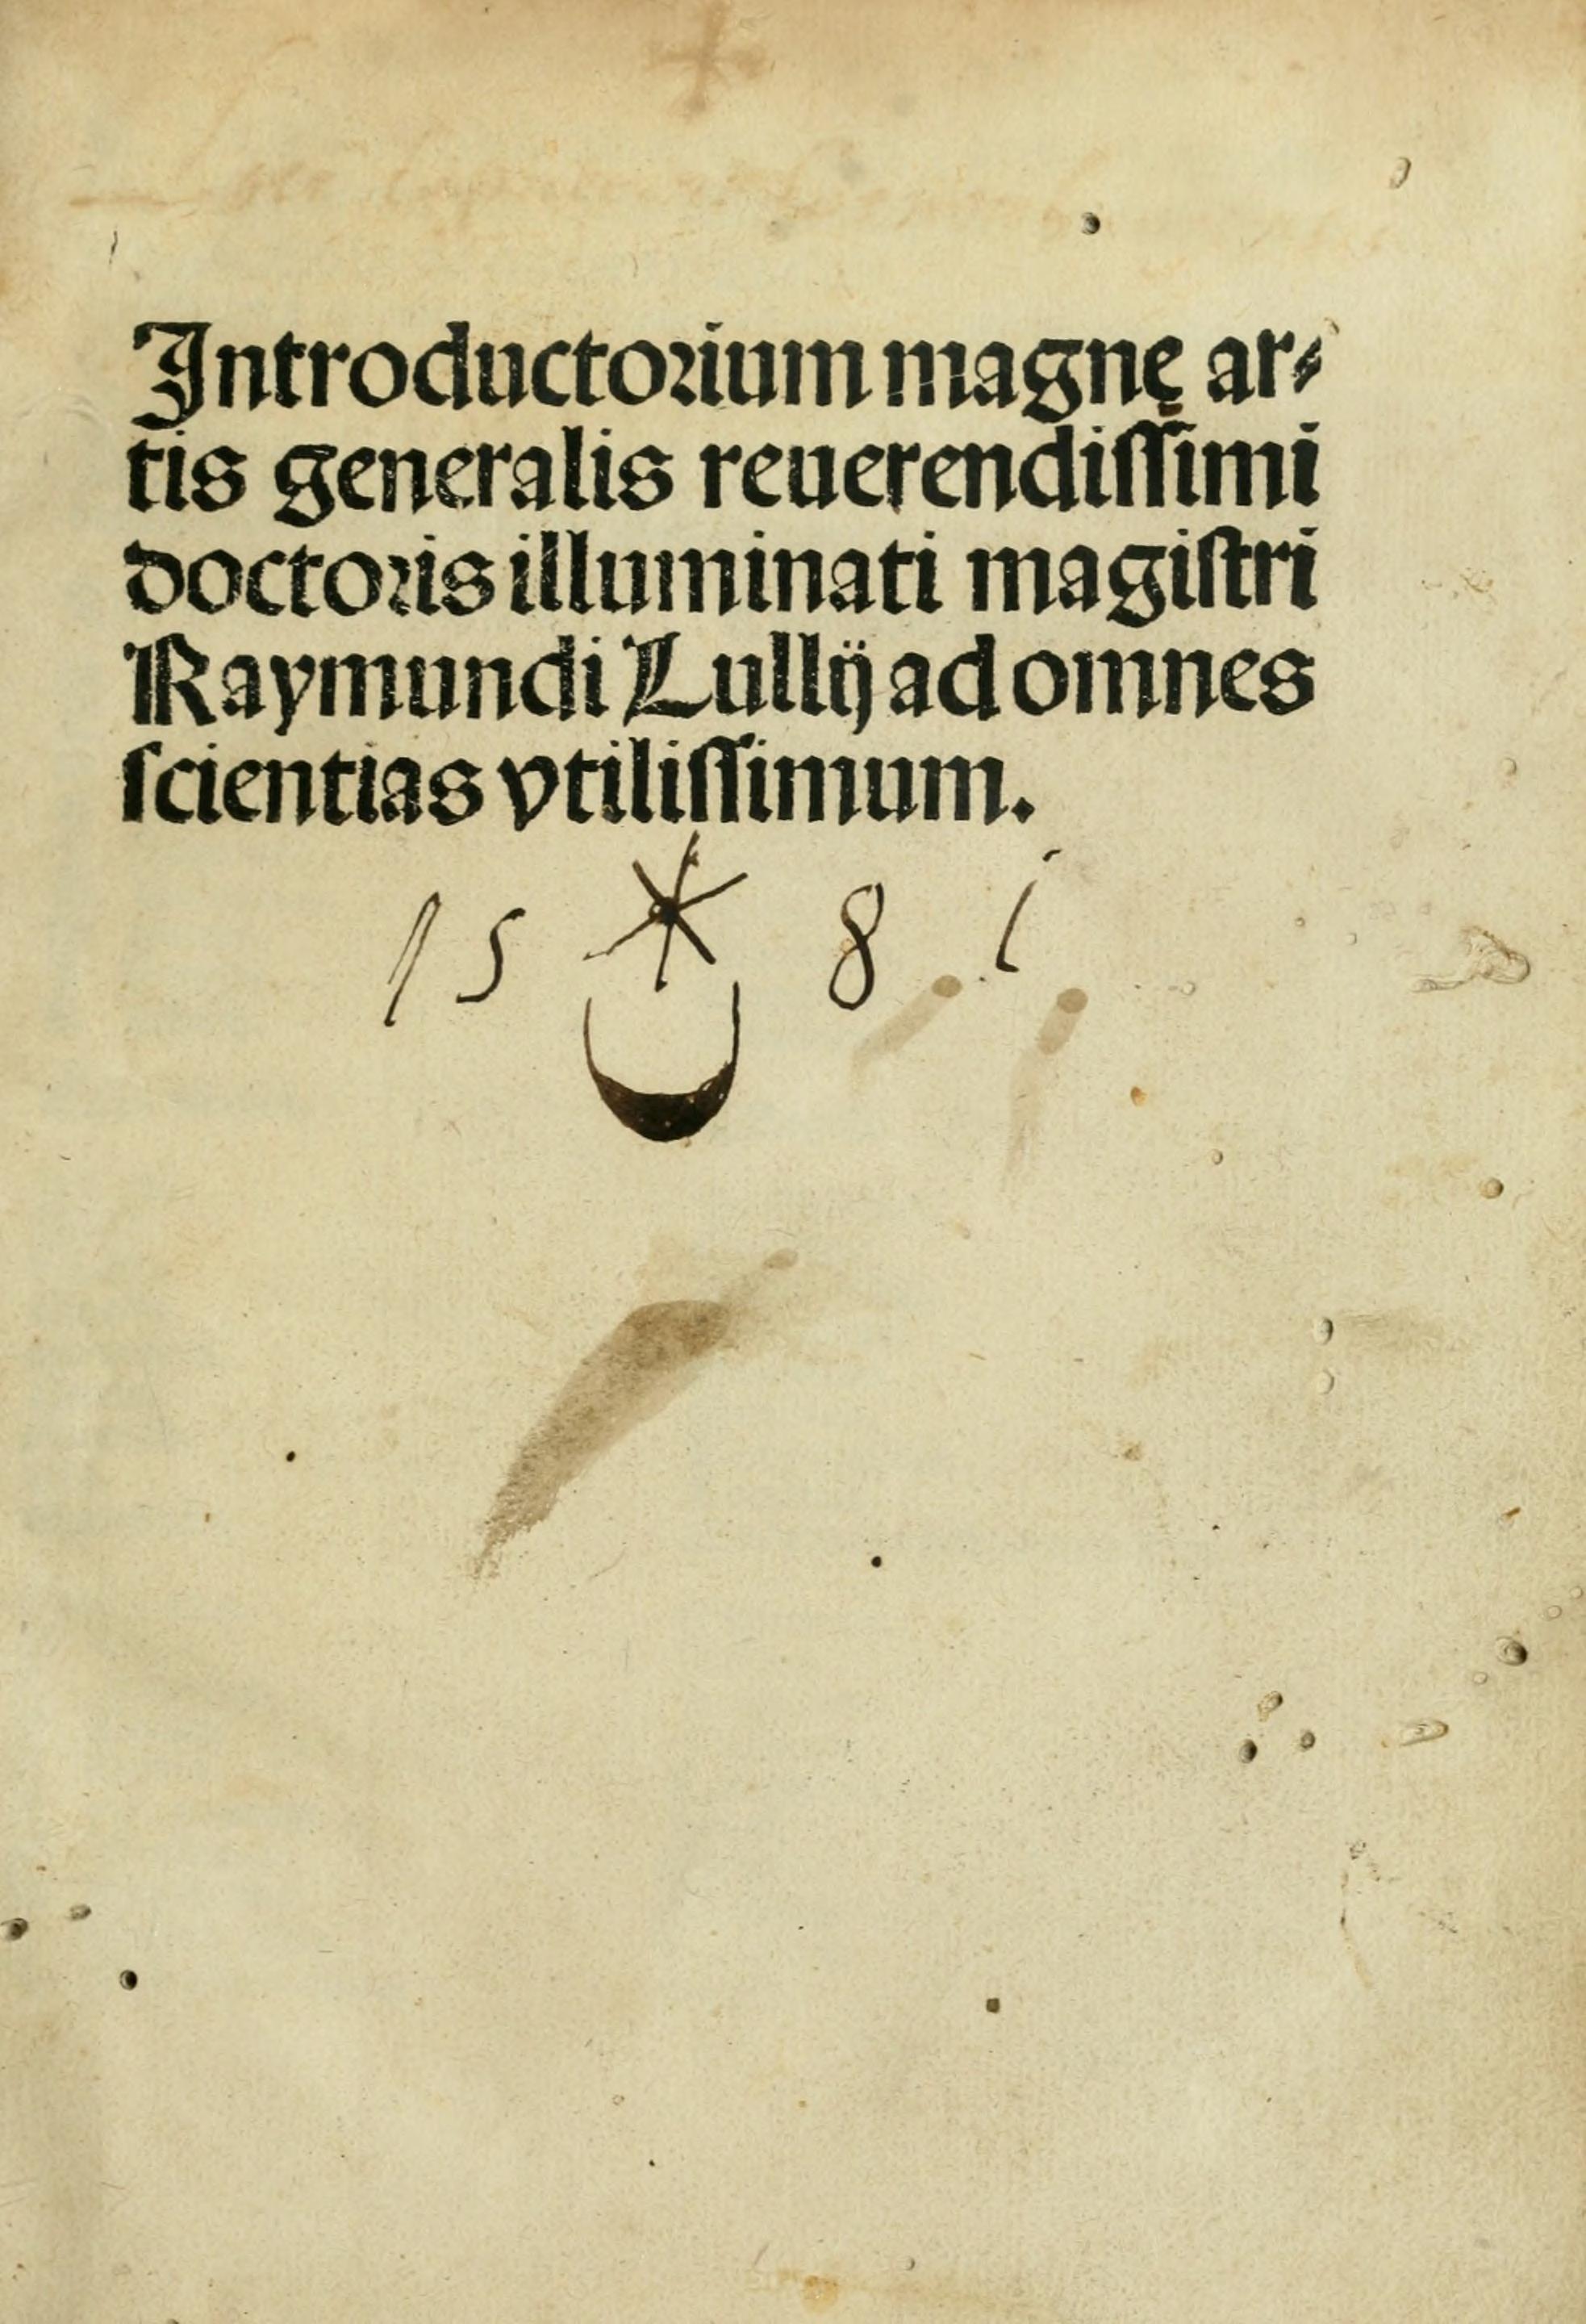 Introductorium magnę ar-
tis generalis reuerendiſſimi
doctoris illuminati magiſtri
Raymundi Lullij ad omnes
ſcientias vtiliſſimum.
15 8 1